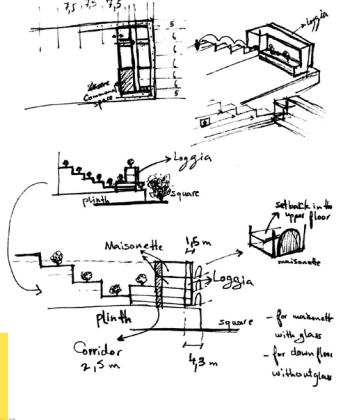 7,5 7,5 7,5
5
6
6
6
6
6
5
Loggia
Loggia
square
plinth
set back in the
upper floor
maisonette
Maisonette
1,5 m
Loggia
plinth
square
Corridor
2,5 m
4,3 m
- for maisonett
with glass
- for down floor
without glass